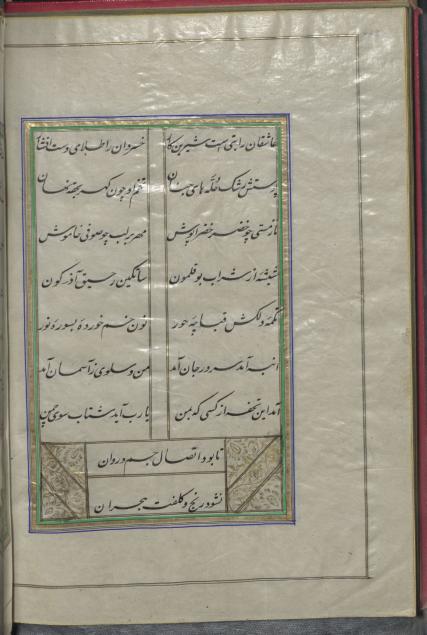 عاشقان را بتی است شیرین کار خسروان را طلای دست افشار
پوستش رشک حلّه های جنان تخم او چون گهر بحقه نهان
نازشی چو خضر خضرا پوش مهر بر لب چو صوفی خاموش
شیشه از شراب بوقلمون ساتگین رحیق آذرگون
تکمه دلکش قباچه حور نون خم خورده بسوره نور
انبه آمد سرور جان آمد من و سلوی ز آسمان آمد
آمد این تحفه از کسی که بمن یا رب آید شتاب سوی چمن
تا بود اتصال جسم و روان
نشود رنج و کلفت هجران